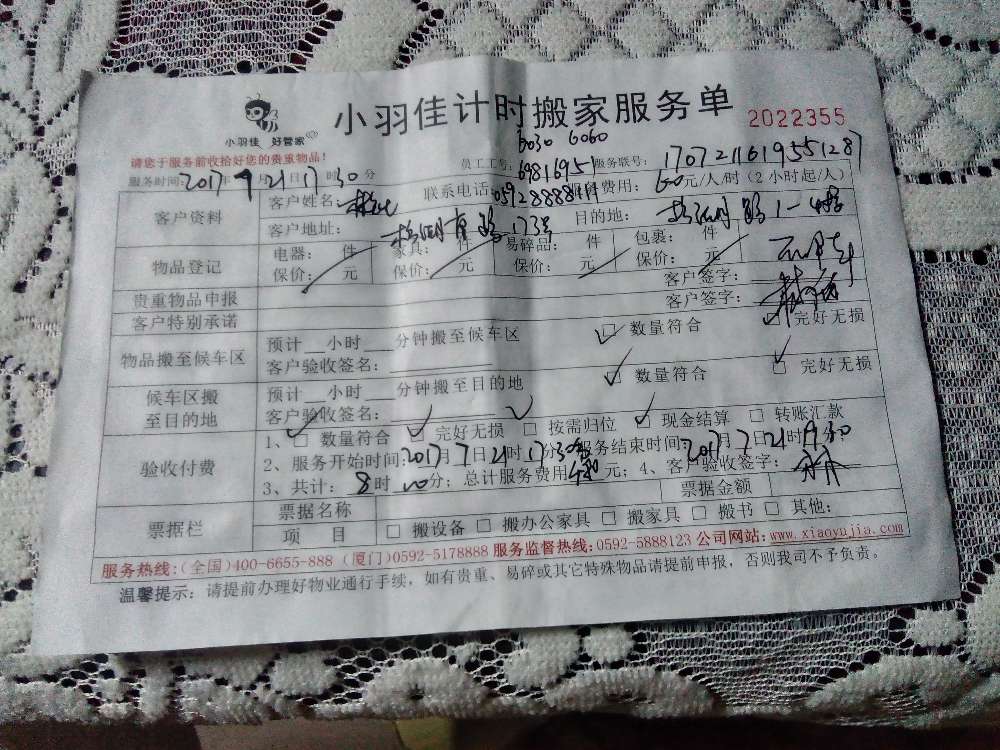 小羽佳 好管家
小羽佳计时搬家服务单
2022355
6030 6060
请您于服务前收拾好您的贵重物品!
员工工号: 69816951 服务联号: 1707211619551287
服务时间: 2017年 月21日17 30分
客户资料 客户姓名: 联系电话: 费用: 60元/人/时(2小时起/人)
客户地址: 173号 目的地:
物品登记 电器: 件 家具: 件 易碎品: 件 包裹: 件
保价: 元 保价: 元 保价: 元 保价: 元
贵重物品申报 客户签字:
客户特别承诺 客户签字:
物品搬至候车区 预计 小时 分钟搬至候车区 □ 数量符合 □ 完好无损
客户验收签名:
候车区搬至目的地 预计 小时 分钟搬至目的地 □ 数量符合 □ 完好无损
客户验收签名:
验收付费 1、□ 数量符合 □ 完好无损 □ 按需归位 □ 现金结算 □ 转账汇款
2、服务开始时间: 2017年7月21日17时30分 服务结束时间: 2017年7月21日
3、共计: 8时 分; 总计服务费用 元; 4、客户验收签字:
票据栏 票据名称 票据金额
项 目 □ 搬设备 □ 搬办公家具 □ 搬家具 □ 搬书 □ 其他:
服务热线:(全国)400-6655-888 (厦门)0592-5178888 服务监督热线:0592-5888123 公司网站:www.xiaoyujia.com
温馨提示: 请提前办理好物业通行手续, 如有贵重、易碎或其它特殊物品请提前申报, 否则我司不予负责。